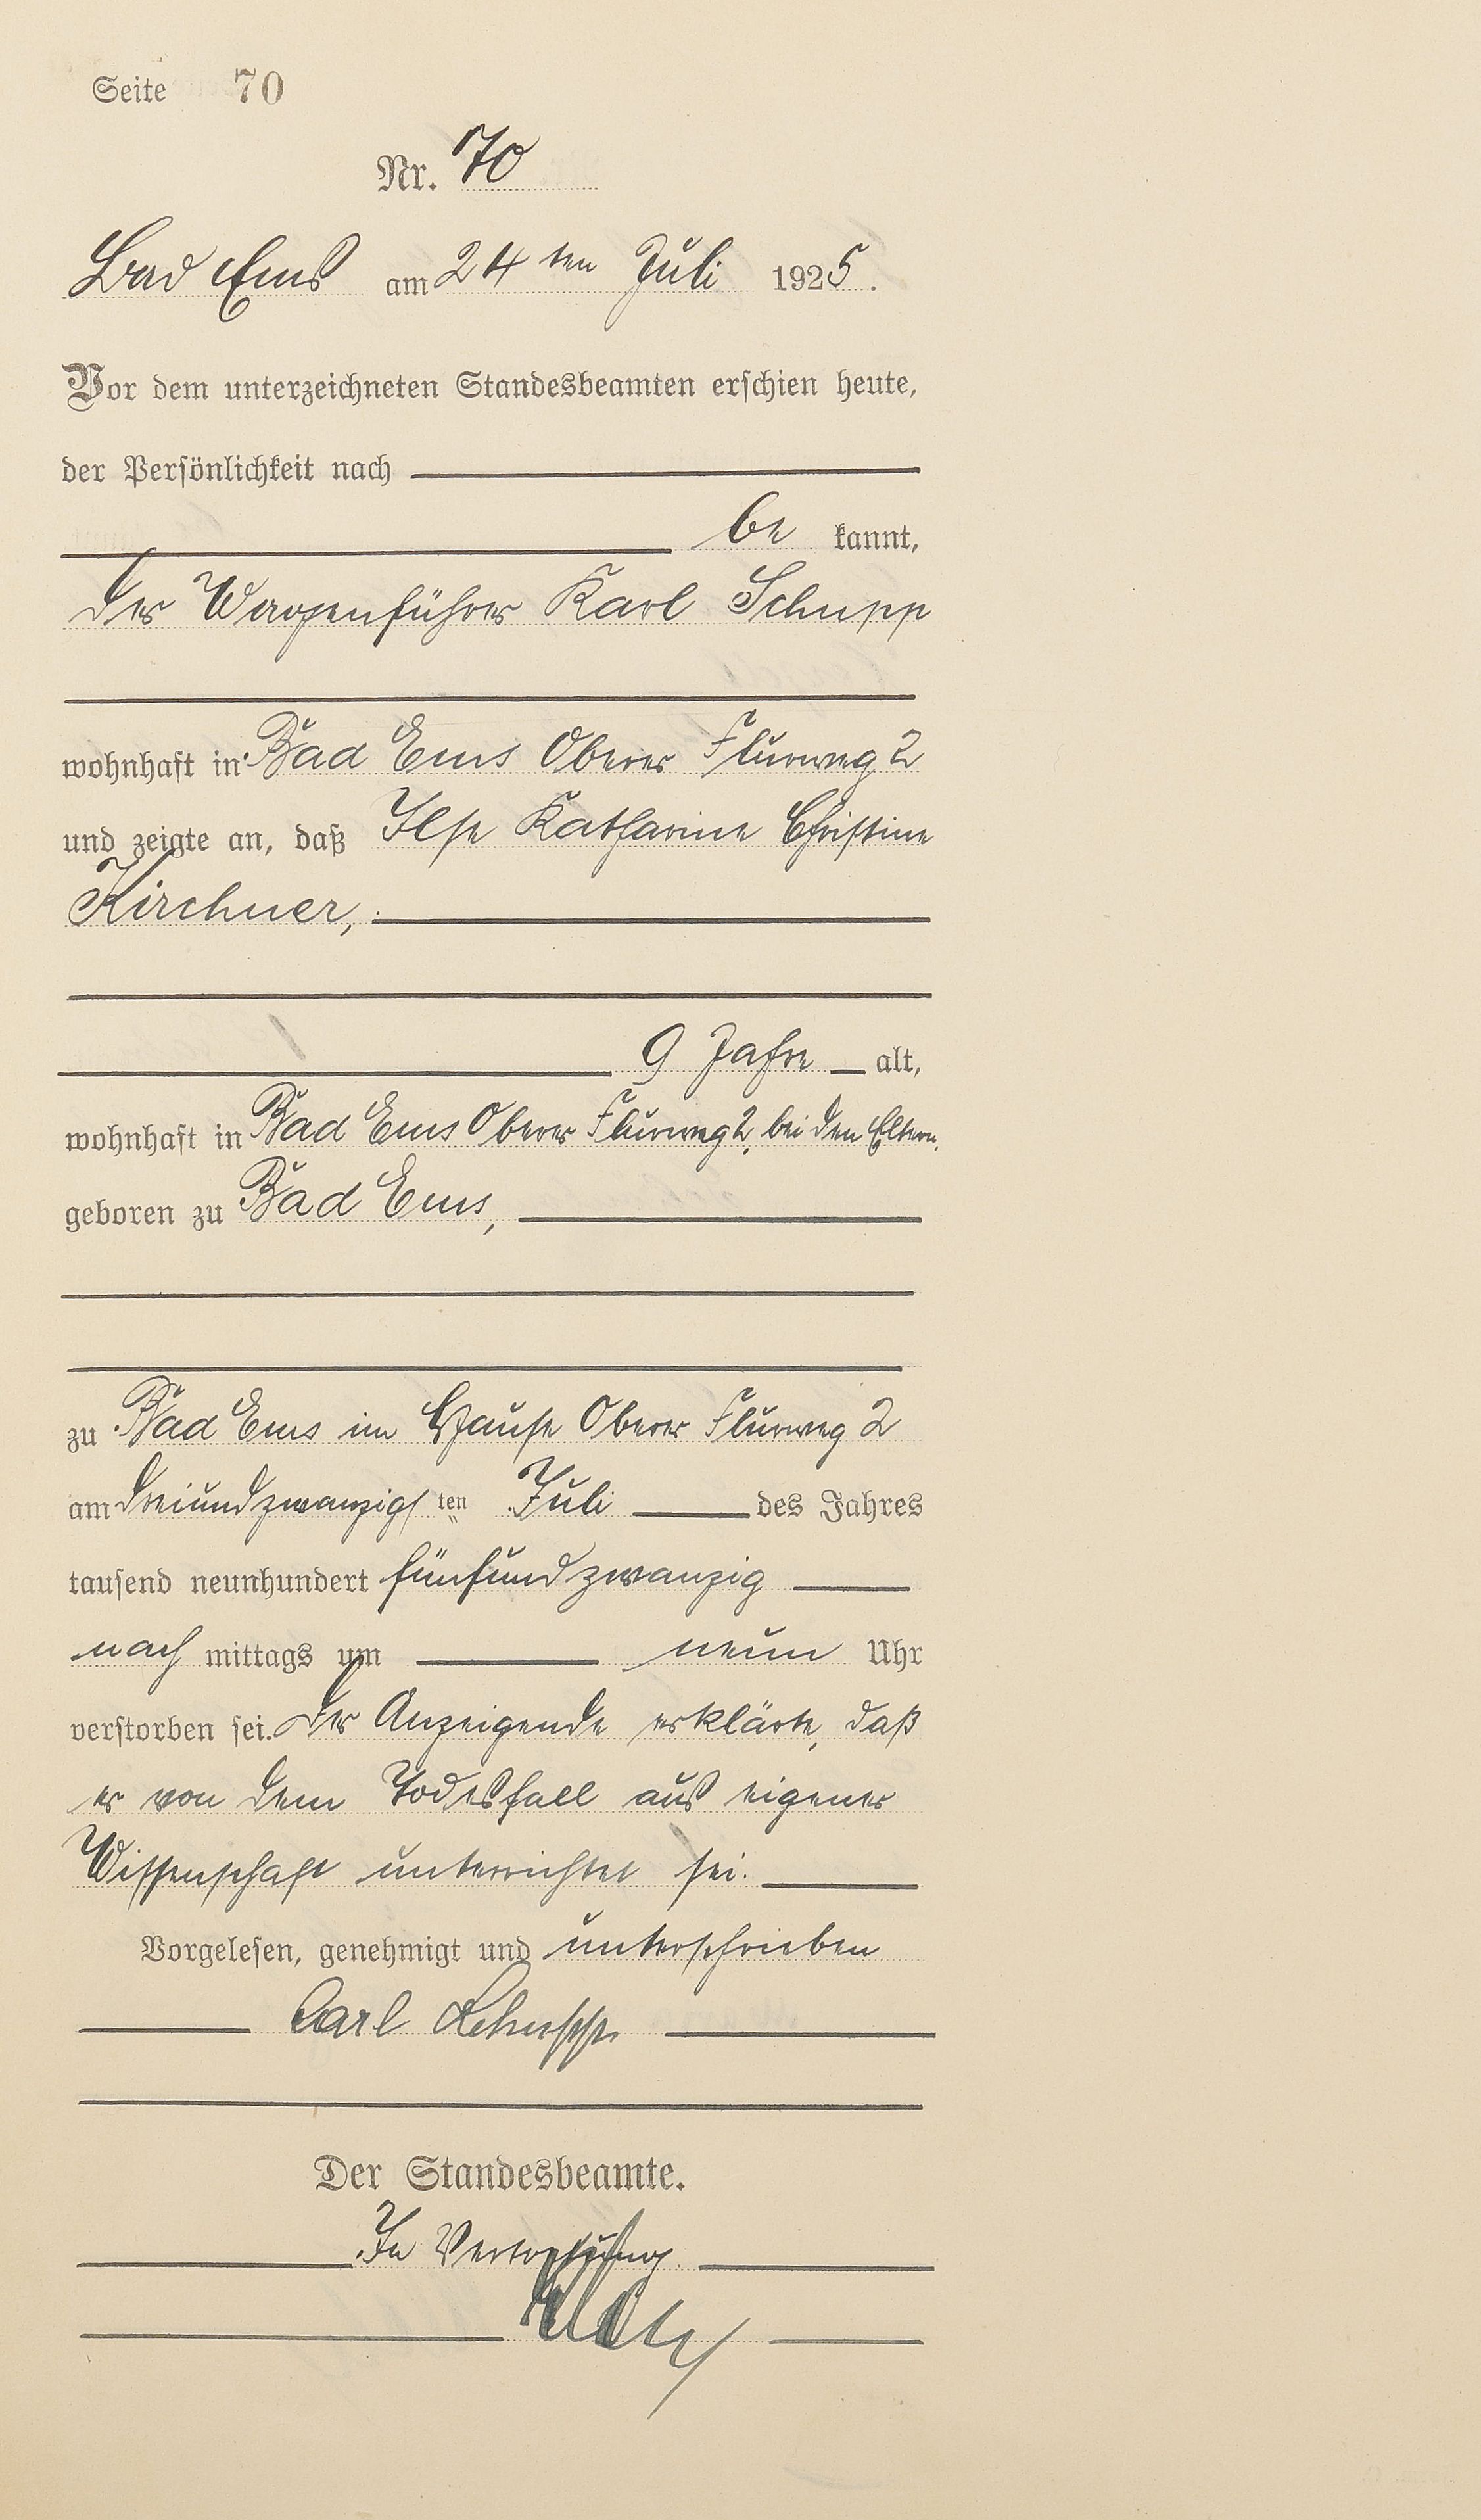 Seite 70
Nr. 70
Bad Ems am 24ten Juli 1925.
Vor dem unterzeichneten Standesbeamten erschien heute,
der Persönlichkeit nach
be kannt,
der Wagenführer Karl Schupp
wohnhaft in Bad Ems Oberer Flurweg 2
und zeigte an, daß Ilse Katharine Christine
Kirchner,
9 Jahre alt,
wohnhaft in Bad Ems Oberer Flurweg 2, bei den Eltern,
geboren zu Bad Ems,
zu Bad Ems im Hause Oberer Flurweg 2
am dreiundzwanzigsten Juli des Jahres
tausend neunhundert fünfundzwanzig
nach mittags um neun Uhr
verstorben sei. Der Anzeigende erklärte, daß
er von dem Todesfall aus eigener
Wissenschaft unterrichtet sei.
Vorgelesen, genehmigt und unterschrieben.
Carl Schupp.
Der Standesbeamte.
In Vertretung